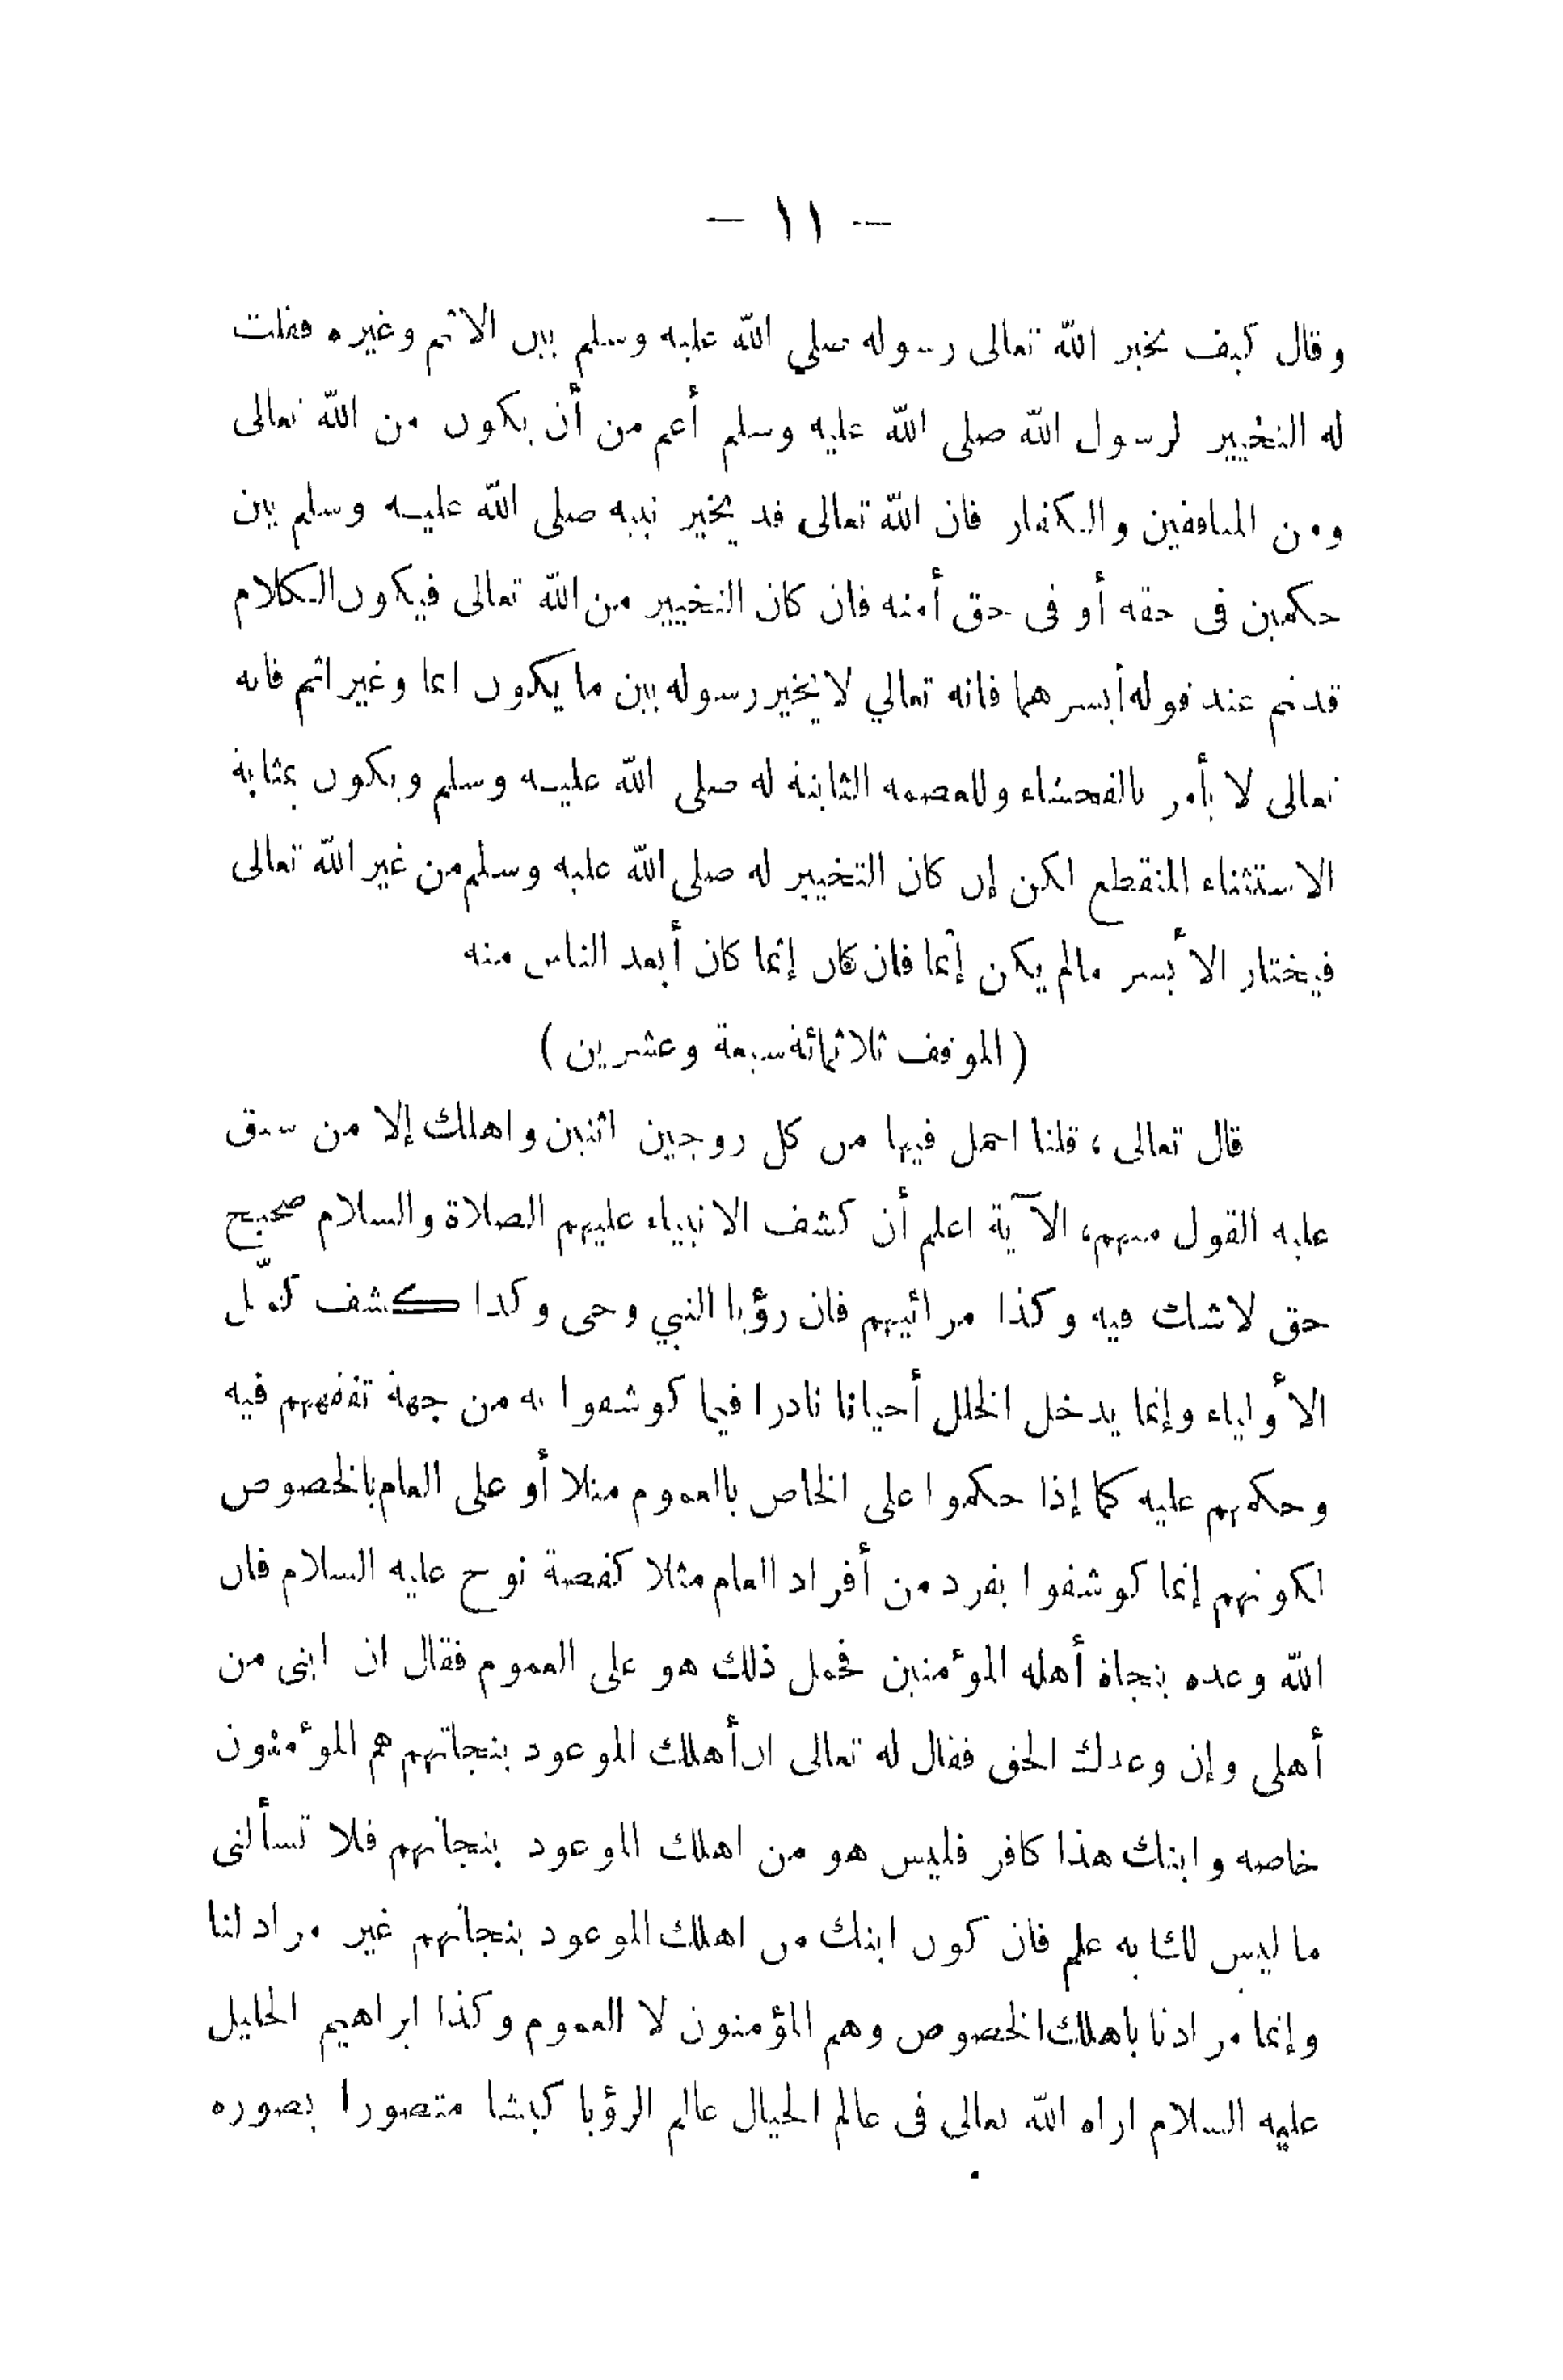 — ١١ —
وقال كيف يخير الله تعالى رسوله صلى الله عليه وسلم بين الاثم وغيره فقلت
له التخيير لرسول الله صلى الله عليه وسلم أعم من أن يكون من الله تعالى
ومن المنافقين والكفار فان الله تعالى قد يخير نبيه صلى الله عليه وسلم بين
حكمين فى حقه أو فى حق أمته فان كان التخيير من الله تعالى فيكون الكلام
قدتم عند قوله أيسرهما فانه تعالي لا يخير رسوله بين ما يكون اثما وغير اثم فانه
تعالى لا يأمر بالفحشاء وللعصمه الثابتة له صلى الله عليه وسلم ويكون بمثابة
الاستثناء المنقطع لكن إن كان التخيير له صلى الله عليه وسلم من غير الله تعالى
فيختار الأيسر مالم يكن إثما فان كان إثما كان أبعد الناس منه
( الموقف ثلاثمائة سبعة وعشرين )
قال تعالى ، قلنا احمل فيها من كل زوجين اثنين واهلك إلا من سبق
عليه القول منهم، الآية اعلم أن كشف الانبياء عليهم الصلاة والسلام صحيح
حق لاشك فيه وكذا مرائيهم فان رؤيا النبي وحى وكذا كشف كمّل
الأولياء وإنما يدخل الخلل أحيانا نادرا فيما كوشفوا به من جهة تفقههم فيه
وحكمهم عليه كما إذا حكموا على الخاص بالعموم مثلا أو على العام بالخصوص
لكونهم إنما كوشفوا بفرد من أفراد العام مثلا كقصة نوح عليه السلام فان
الله وعده بنجاة أهله المؤمنين فحمل ذلك هو على العموم فقال ان ابنى من
أهلى وإن وعدك الحق فقال له تعالى ان أهلك الموعود بنجاتهم هم المؤمنون
خاصه وابنك هذا كافر فليس هو من اهلك الموعود بنجاتهم فلا تسألنى
ما ليس لك به علم فان كون ابنك من اهلك الموعود بنجاتهم غير مراد لنا
وإنما مرادنا باهلك الخصوص وهم المؤمنون لا العموم وكذا ابراهيم الخليل
عليه السلام اراه الله تعالى فى عالم الخيال عالم الرؤيا كبشا متصورا بصوره